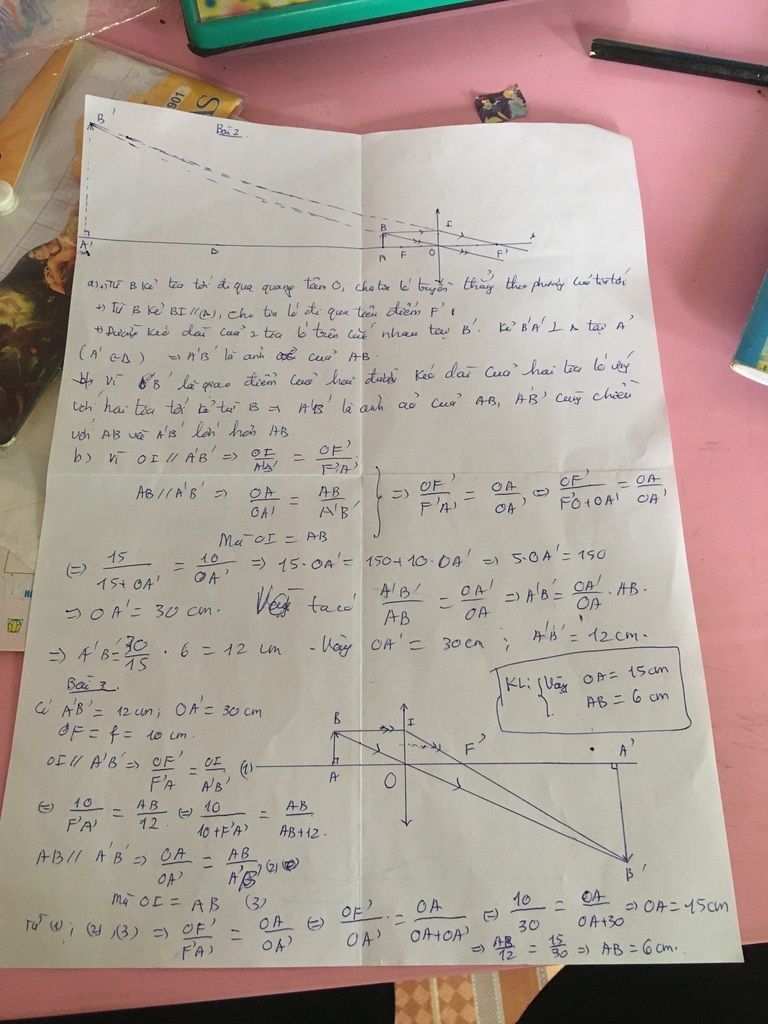 Bài 2
B'
A'
Δ
B
I
A
F
O
F'
a) +) Từ B kẻ tia tới đi qua quang tâm O, cho tia ló truyền thẳng theo phương của tia tới
+) Từ B kẻ BI // (Δ), cho tia ló đi qua tiêu điểm F'
+) Đường kéo dài của 2 tia ló trên cắt nhau tại B'. Kẻ B'A' ⊥ Δ tại A'
(A' ∈ Δ) ⇒ A'B' là ảnh của AB.
Vì B' là giao điểm của hai đường kéo dài của hai tia ló ứng
với hai tia tới kẻ từ B ⇒ A'B' là ảnh ảo của AB, A'B' cùng chiều
với AB và A'B' lớn hơn AB
b) Vì OI // A'B' ⇒ OI/A'B' = OF'/F'A'
AB // A'B' ⇒ OA/OA' = AB/A'B'
Mà OI = AB
} ⇒ OF'/F'A' = OA/OA' ⇔ OF'/F'O+OA' = OA/OA'
⇔ 15/15+OA' = 10/OA' ⇒ 15·OA' = 150+10·OA' ⇒ 5·OA' = 150
⇒ OA' = 30 cm. ta có A'B'/AB = OA'/OA ⇒ A'B' = OA'/OA · AB.
⇒ A'B' = 30/15 · 6 = 12 cm - Vậy OA' = 30cm ; A'B' = 12cm.
Bài 3.
Có A'B' = 12cm; OA' = 30cm
OF = f = 10 cm.
OI // A'B' ⇒ OF'/F'A' = OI/A'B' (1)
⇔ 10/F'A' = AB/12 ⇔ 10/10+F'A' = AB/AB+12.
AB // A'B' ⇒ OA/OA' = AB/A'B' (2)
Mà OI = AB (3)
Từ (1); (2); (3) ⇒ OF'/F'A' = OA/OA' ⇔ OF'/OA' = OA/OA+OA' ⇔ 10/30 = OA/OA+30 ⇒ OA = 15cm
⇒ AB/12 = 15/30 ⇒ AB = 6cm.
KL: { Vậy OA = 15cm
AB = 6 cm
B
I
A
O
F'
A'
B'
901